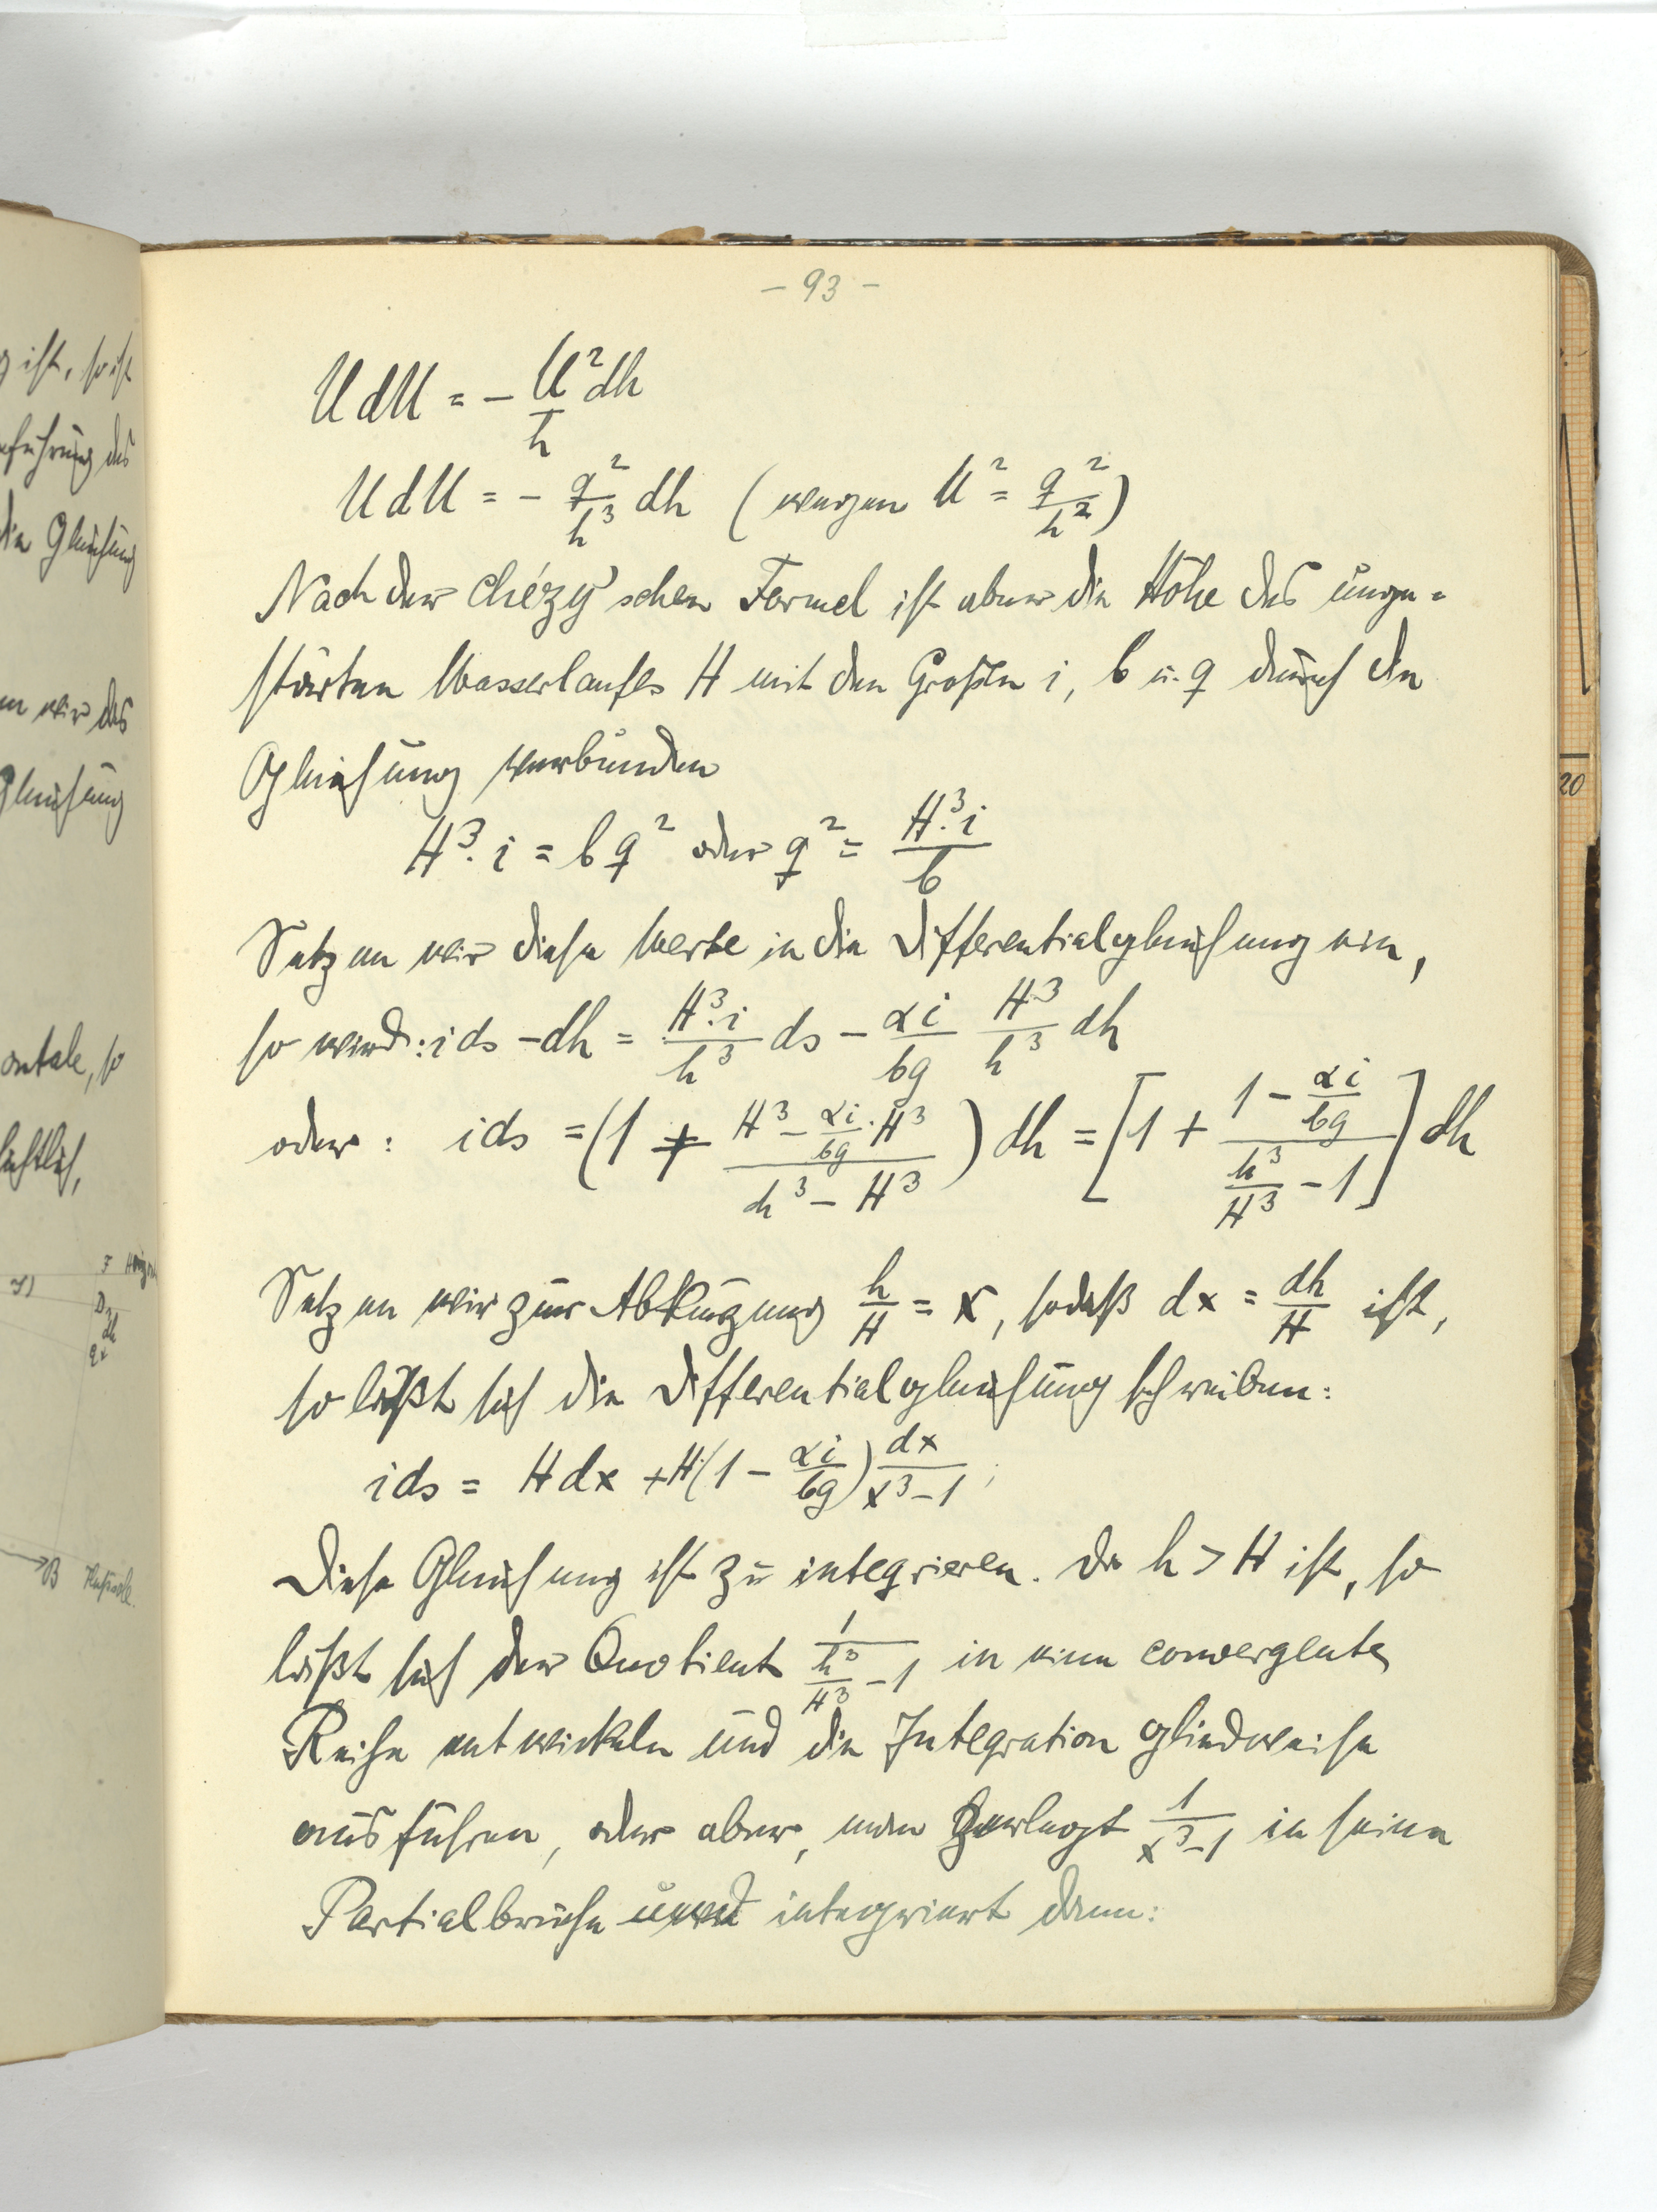 - 93 -
U dU = - U²/h dh
U dU = - q²/h³ dh (wegen U² = q²/h²)
Nach der Chézy'schen Formel ist aber die Höhe des unge=
störten Wasserlaufes H mit den Größen i, b u. q durch die
Gleichung verbunden
H³. i = b q² oder q² = H³. i / b
Setzen wir diese Werte in die Differentialgleichung ein,
so wird: i ds - dh = H³. i / h³ ds - αi/bg H³/h³ dh
oder: i ds = (1 + (H³ - αi/bg . H³)/(h³ - H³)) dh = [1 + (1 - αi/bg)/(h³/H³ - 1)] dh
Setzen wir zur Abkürzung h/H = x, sodaß dx = dh/H ist,
so läßt sich die Differentialgleichung schreiben:
i ds = H dx + H (1 - αi/bg) dx/(x³ - 1)
Diese Gleichung ist zu integrieren. Da h > H ist, so
läßt sich der Quotient 1/(h³/H³ - 1) in eine convergente
Reihe entwickeln und die Integration gliedweise
ausführen, oder aber, man zerlegt 1/(x³ - 1) in seine
Partialbrüche und integriert dann:
g ist, so ist
führung des
die Gleichung
wir das
Gleichung
ontale, so
B
20